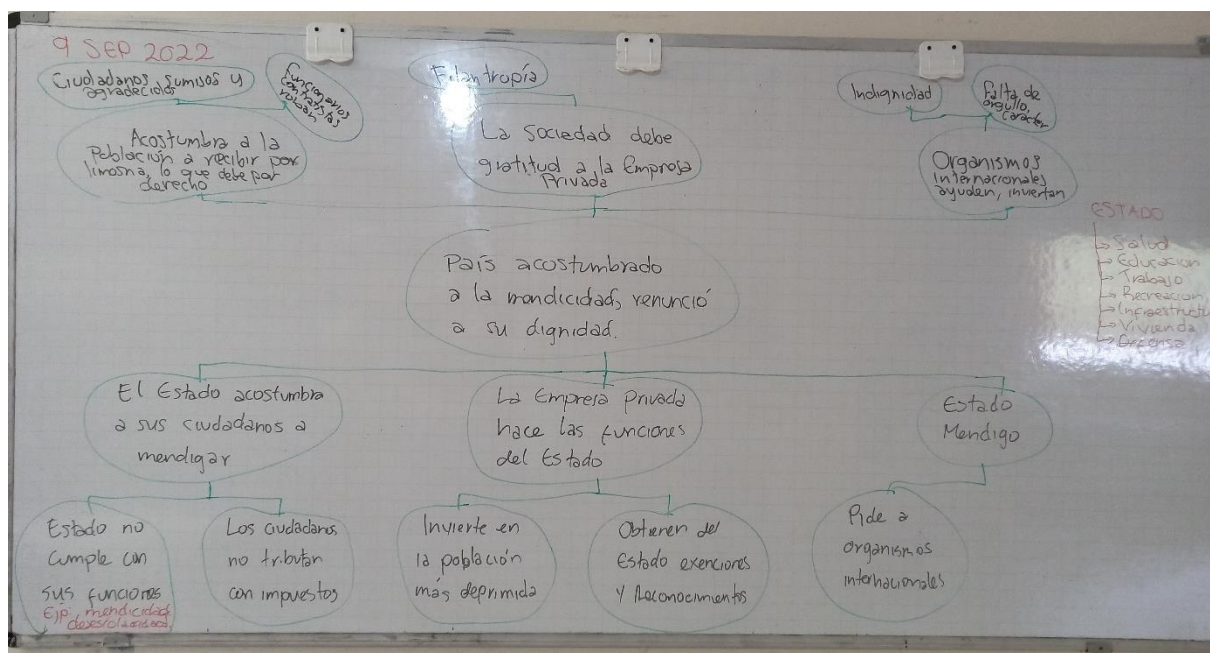 9 SEP 2022
Ciudadanos, sumisos y
agradecidos
Funcionarios
contratistas
roban
Acostumbra a la
Población a recibir por
limosna, lo que debe por
derecho
Filantropía
La Sociedad debe
gratitud a la Empresa
Privada
Indignidad
Falta de
orgullo,
caracter
Organismos
internacionales
ayuden, inviertan
ESTADO
Salud
Educacion
Trabajo
Recreacion
Infraestructu
Vivienda
Defensa
País acostumbrado
a la mendicidad, renunció
a su dignidad.
El Estado acostumbra
a sus ciudadanos a
mendigar
La Empresa Privada
hace las funciones
del Estado
Estado
Mendigo
Estado no
cumple con
sus funciones
Ejp: mendicidad,
Los ciudadanos
no tributan
con impuestos
Invierte en
la población
más deprimida
Obtienen del
Estado exenciones
y Reconocimientos
Pide a
organismos
internacionales